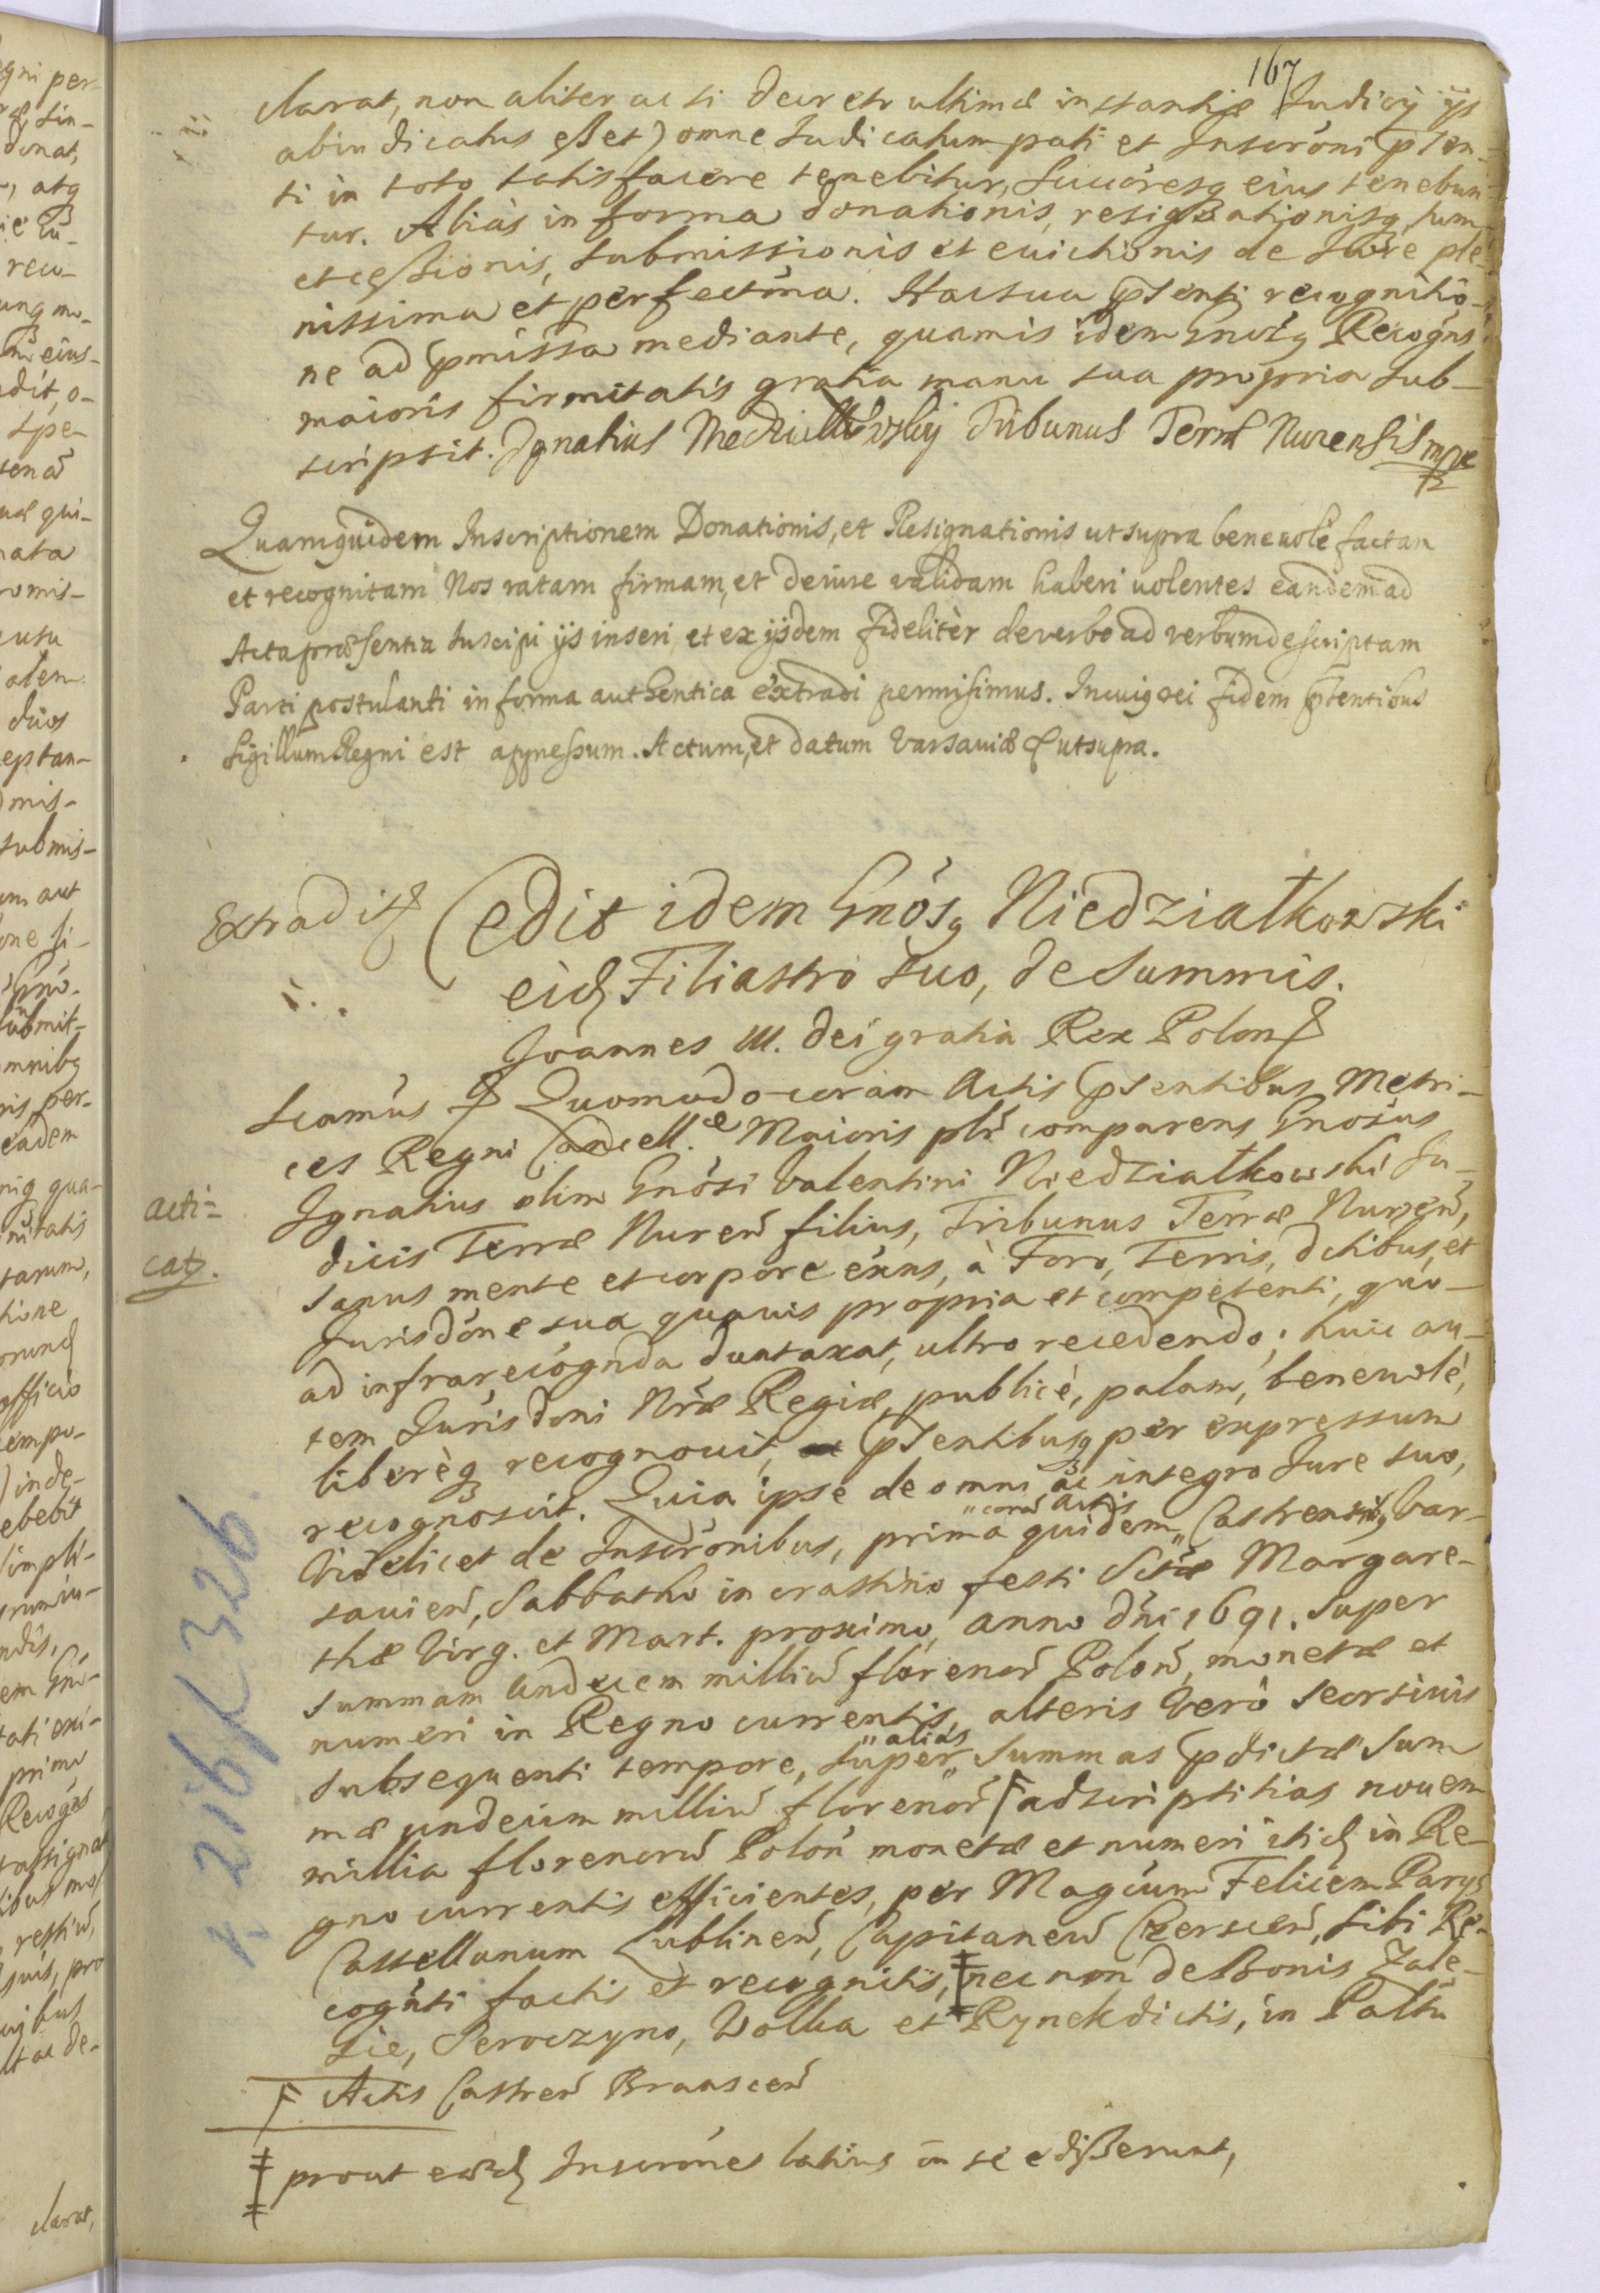 167
clarat, non aliter ac si decreto ultimæ instantiæ Judicij ijs
abiudicatus eßet) omne Judicatum pati et Inscrõni pñsen-
ti in toto satisfacere tenebitur, Succõresq eius tenebun-
tur. Aliàs in forma donationis, resignationisq, tum
et ceßionis, submissionis et euictionis de Jure ple-
nissima et perfectma. Hac sua pñsenti recognitio-
ne ad præmissa mediante, quam is idem Gnõsq Recogñs
maioris firmitatis gratia manu sua propria sub-
scripsit. Ignatius Tribunus Terræ Nurensis mpr
Quamquidem Inscriptionem Donationis, et Resignationis ut supra beneuolè factam
et recognitam Nos ratam firmam, et deiure validam haberi uolentes eandem ad
Acta præsentia suscipi ijs inseri, et ex ijsdem fidelitèr deverbo ad verbum descriptam
Parti postulanti in forma authentica extradi permisimus. Incuiq rei fidem pñsentibus
Sigillum Regni est appressum. Actum, et datum Varsauiæ & ut supra.
Extradit
Cedit idem Gnõsq Niedziałkowski
eid Filiastro suo, de Summis.
Joannes III. dei gratia Rex Polon &
scamus & Quomodo coram Actis pñsentibus Metri-
ces Regni Cancell.æ Maioris plr comparens Gnosus
Ignatius olim Gnõsi Valentini Niedziałkowski Ju-
dicis Terræ Nuren filius, Tribunus Terræ Nuren,
sanus mente et corpore exns, à Foro, Terris, dctibus, et
Jurisdõne sua quauis propria et competenti, quo-
ad infra recógnda duntaxat, ultro recedendo; huic au-
tem Jurisdõni Nræ Regiæ, publicè, palam, beneuolè,
liberèq recognouit, pñsentibusq per expressum
recognoscit. Quia ipse de omni ac integro Jure suo,
Videlicet de Inscrõnibus, prima quidem "coram Actis" Castrensib, Var-
sauien, Sabbatho in crastino festi Sctæ Margare-
thæ Virg. et Mart. proximo, anno dñi 1691. super
summam Undecem milliu florenor Polon, monetæ et
numeri in Regno currentis, alteris Verò seorsiuis
subsequenti tempore, super "aliàs" summas pdictæ sum
mæ undecim milliu florenor adscriptitias nouem
millia florenoru Polon monetæ et numeri itid in Re-
gno currentis efficientes, per Magcum Felicem Parys
Castellanum Lublinen, Capitaneu Czerscen, sibi Re-
cognti factis et recognitis, nec non de Bonis Zale-
sie, Seroczyno, Wolka et Rynek dictis, in Palttu
Actis Castren Braascen
prout eæd Inscrõnes latius in se edißerunt,
acti-
cat.